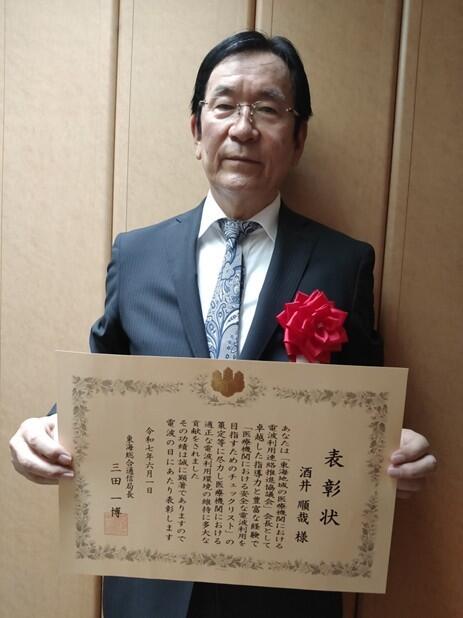 表彰状
酒井 順哉 様
あなたは「東海地域の医療機関における
電波利用連絡推進協議会」会長として
卓越した指導力と豊富な経験で
「医療機関における安全な電波利用を
目指すためのチェックリスト」の
策定等に尽力し医療機関における
適正な電波利用環境の維持に多大な
貢献をされました
その功績は誠に顕著でありますので
電波の日にあたり表彰します
令和七年六月一日
東海総合通信局長
三田 一博